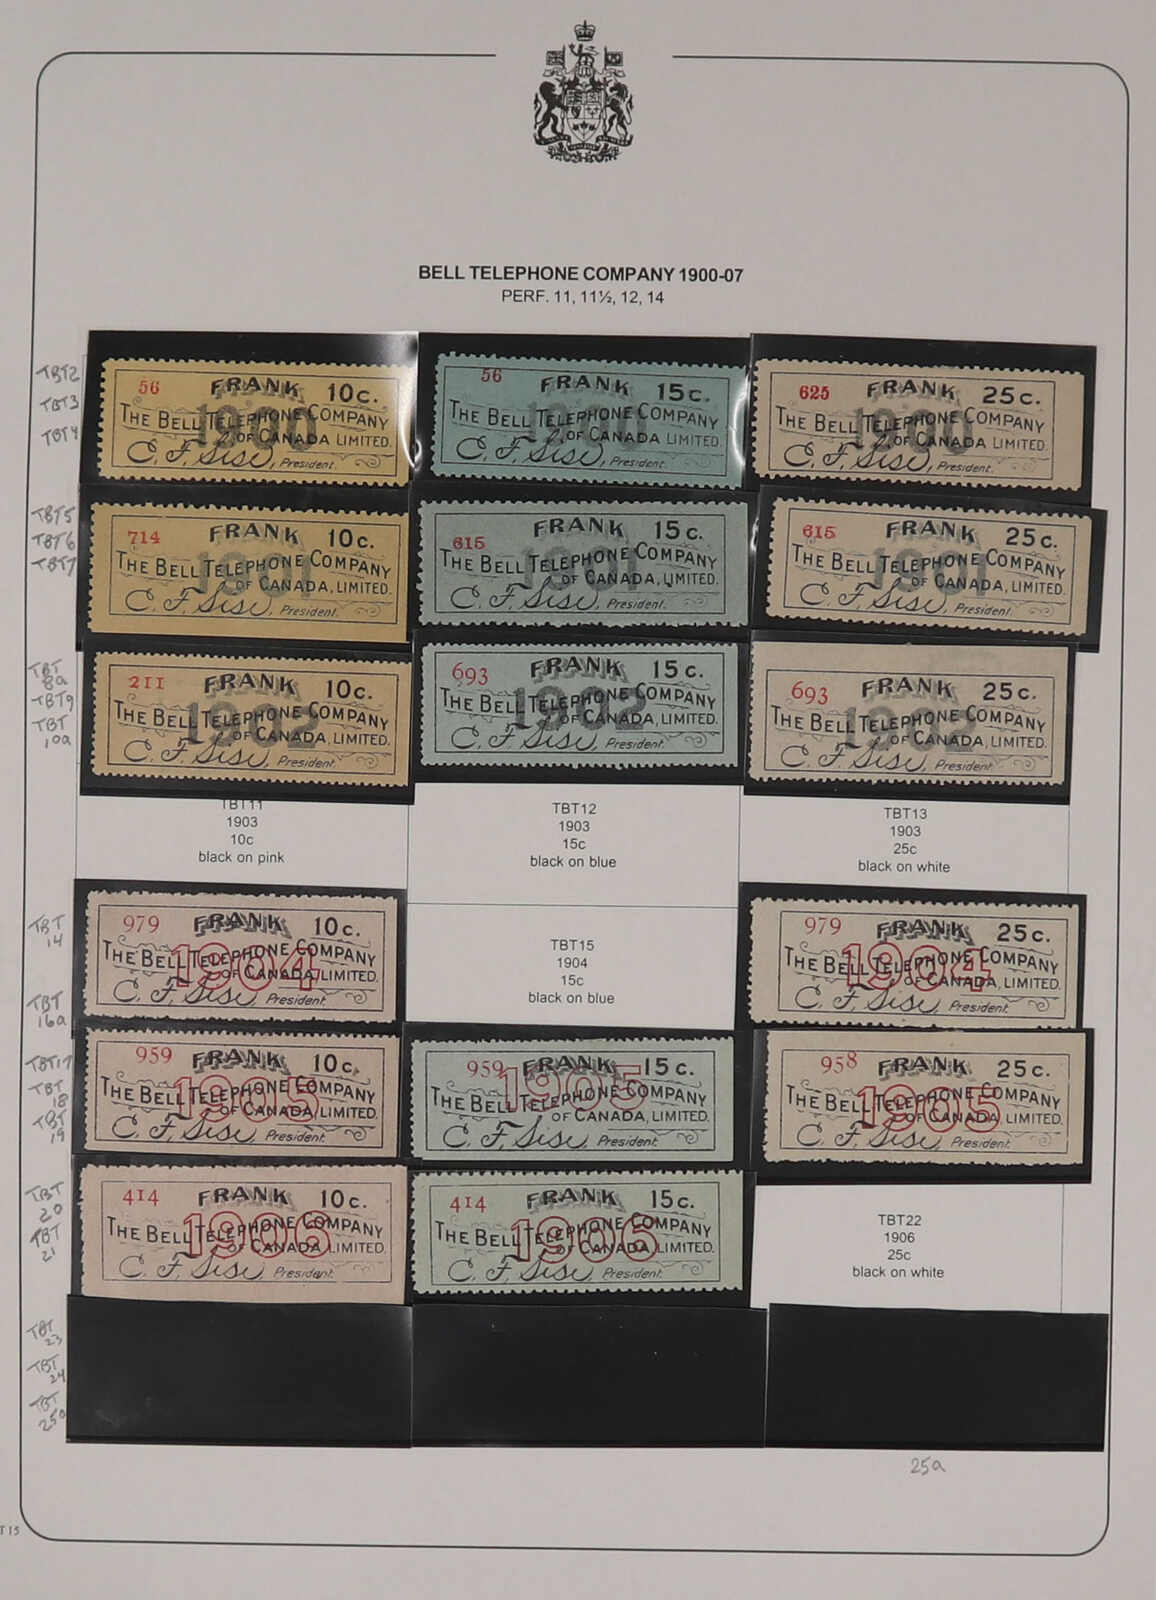 BELL TELEPHONE COMPANY 1900-07
PERF. 11, 11½, 12, 14
TBT2
TBT3
TBT4
56 FRANK 10c.
1900
THE BELL TELEPHONE COMPANY
OF CANADA LIMITED.
C. F. Sise, President.
56 FRANK 15c.
1900
THE BELL TELEPHONE COMPANY
OF CANADA LIMITED.
C. F. Sise, President.
625 FRANK 25c.
1900
THE BELL TELEPHONE COMPANY
OF CANADA LIMITED.
C. F. Sise, President.
TBT5
TBT6
TBT7
714 FRANK 10c.
1901
THE BELL TELEPHONE COMPANY
OF CANADA, LIMITED.
C. F. Sise, President.
615 FRANK 15c.
1901
THE BELL TELEPHONE COMPANY
OF CANADA, LIMITED.
C. F. Sise, President.
615 FRANK 25c.
1901
THE BELL TELEPHONE COMPANY
OF CANADA, LIMITED.
C. F. Sise, President.
TBT
8a
TBT9
TBT
10a
211 FRANK 10c.
1902
THE BELL TELEPHONE COMPANY
OF CANADA, LIMITED.
C. F. Sise, President.
693 FRANK 15c.
1902
THE BELL TELEPHONE COMPANY
OF CANADA, LIMITED.
C. F. Sise, President.
693 FRANK 25c.
1902
THE BELL TELEPHONE COMPANY
OF CANADA, LIMITED.
C. F. Sise, President.
TBT11
1903
10c
black on pink
TBT12
1903
15c
black on blue
TBT13
1903
25c
black on white
TBT
14
TBT
16a
979 FRANK 10c.
1904
THE BELL TELEPHONE COMPANY
OF CANADA, LIMITED.
C. F. Sise, President.
TBT15
1904
15c
black on blue
979 FRANK 25c.
1904
THE BELL TELEPHONE COMPANY
OF CANADA, LIMITED.
C. F. Sise, President.
TBT17
TBT
18
TBT
19
959 FRANK 10c.
1905
THE BELL TELEPHONE COMPANY
OF CANADA, LIMITED.
C. F. Sise, President.
959 FRANK 15c.
1905
THE BELL TELEPHONE COMPANY
OF CANADA, LIMITED.
C. F. Sise, President.
958 FRANK 25c.
1905
THE BELL TELEPHONE COMPANY
OF CANADA, LIMITED.
C. F. Sise, President.
TBT
20
TBT
21
414 FRANK 10c.
1906
THE BELL TELEPHONE COMPANY
OF CANADA, LIMITED.
C. F. Sise, President.
414 FRANK 15c.
1906
THE BELL TELEPHONE COMPANY
OF CANADA, LIMITED.
C. F. Sise, President.
TBT22
1906
25c
black on white
TBT
23
TBT
24
TBT
25a
25a
T15